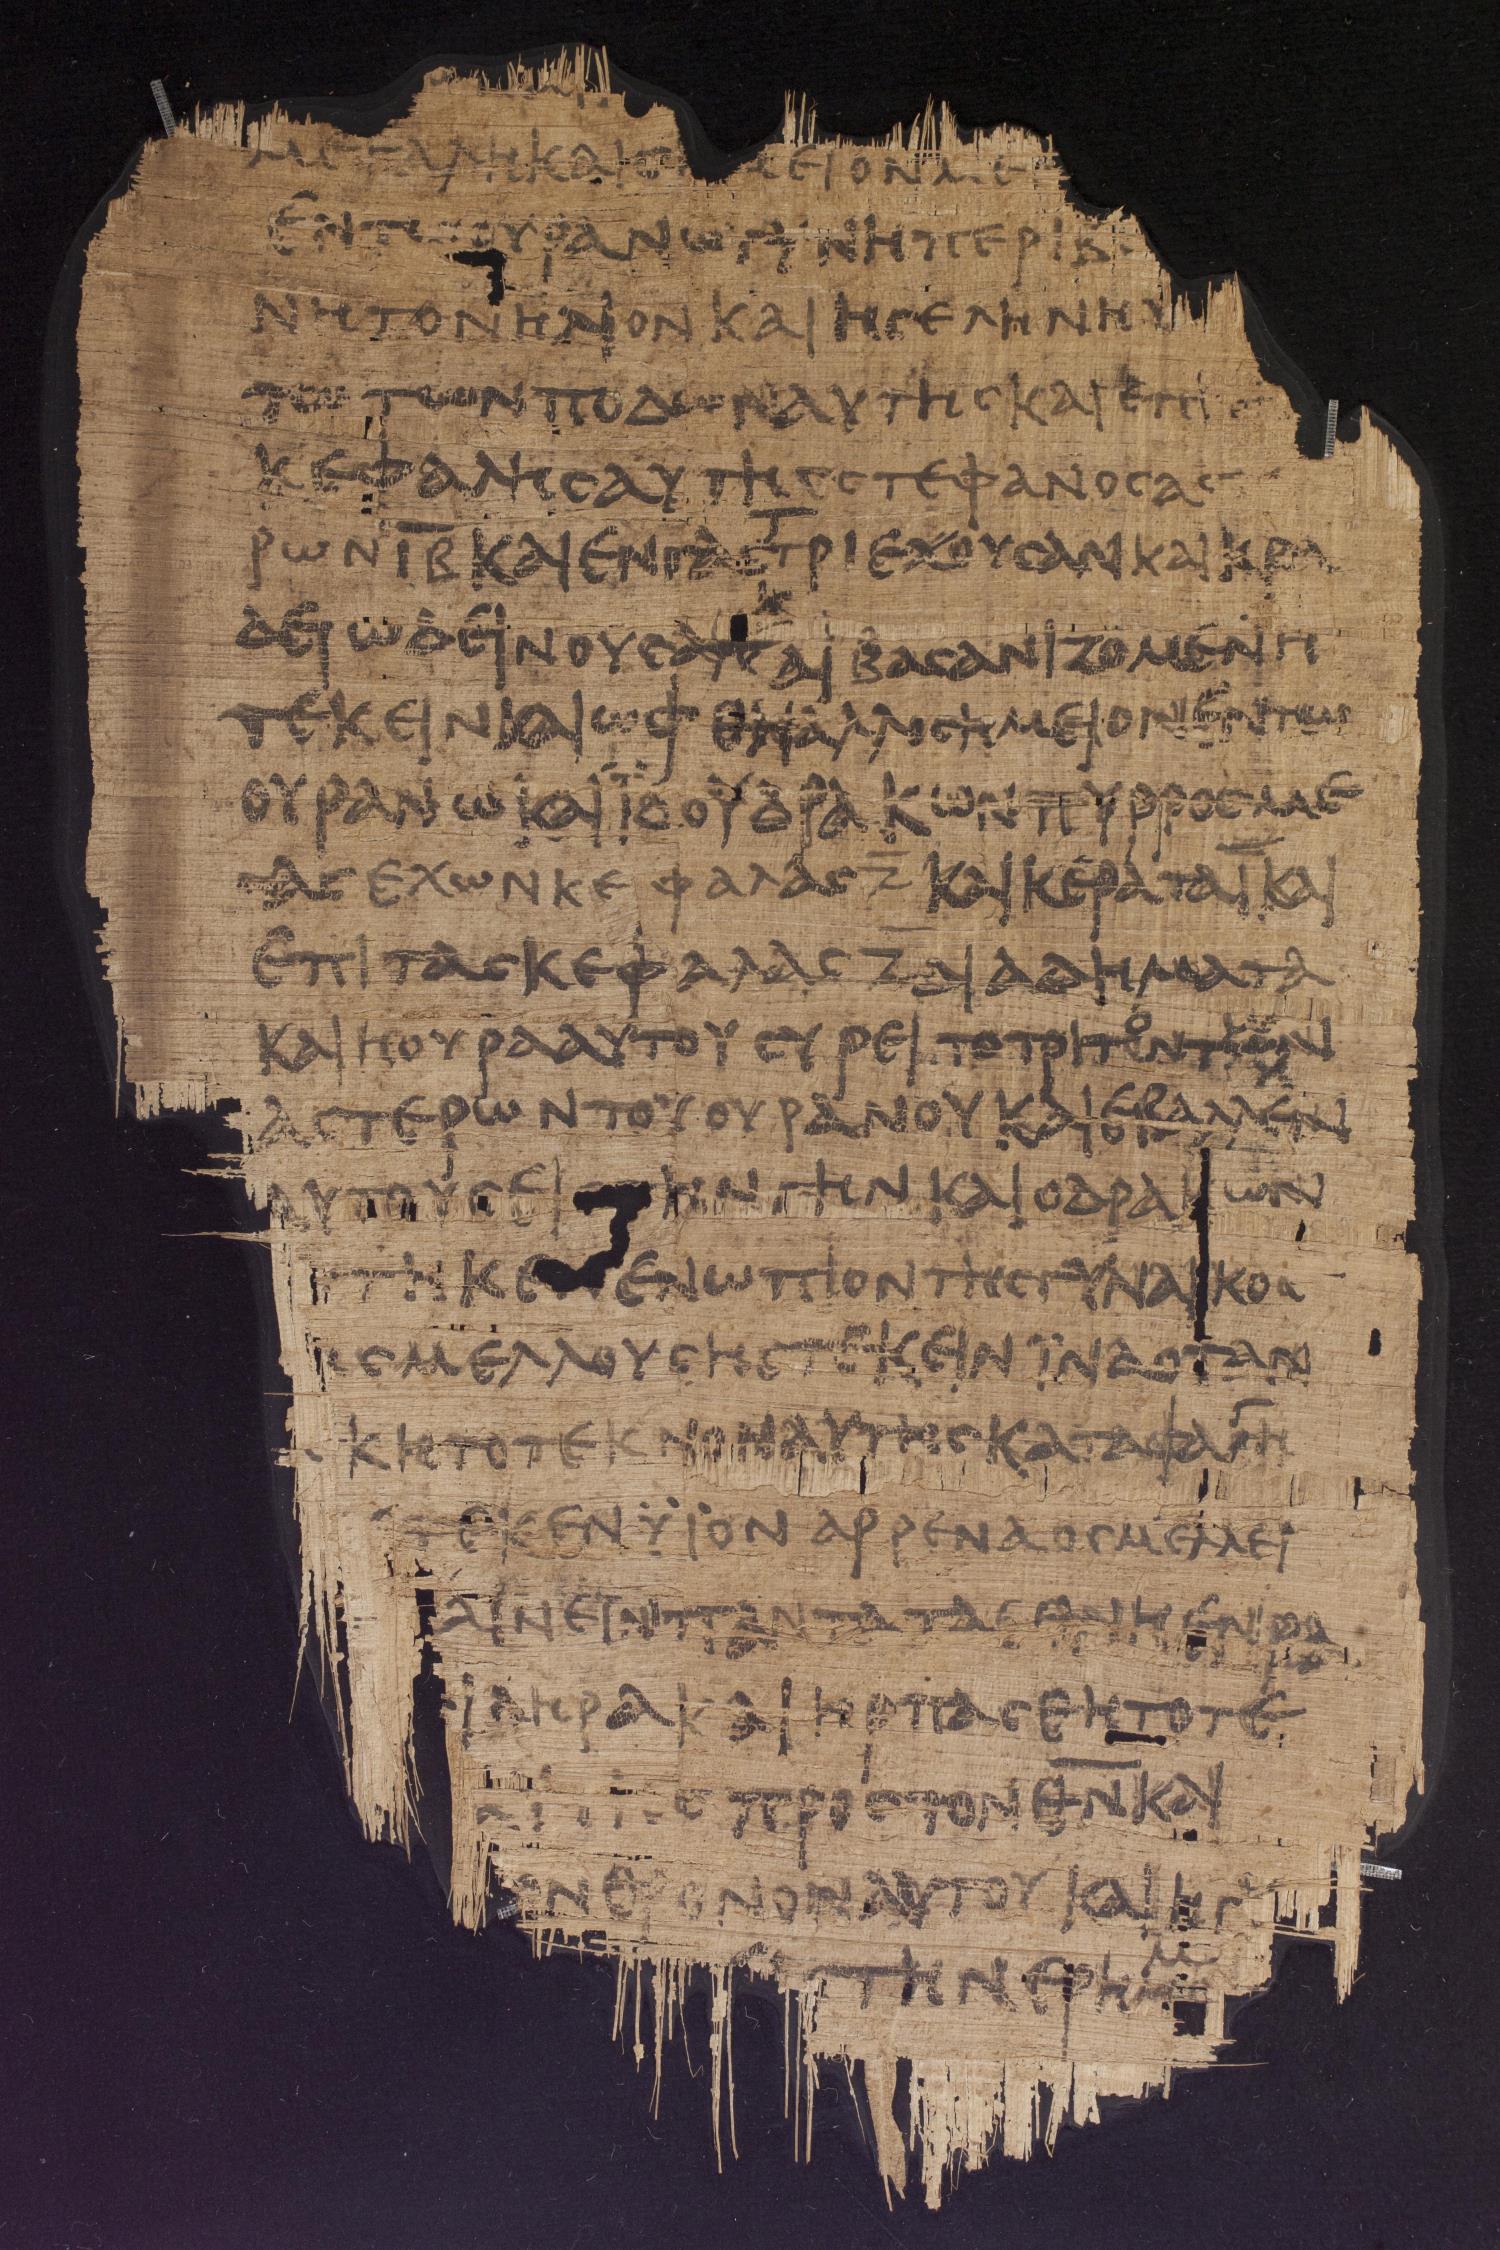 μεγαλη και ση μειον με
εν τω ουρανω γυνη περιβ
νη τον ηλιον και η σεληνη υ
τω των ποδων αυτης και επι
κεφαλης αυτης στεφανος ασ
ρων ι̅β̅ και εν γαστρι εχουσαν και κρα
δει ωδεινουσα και βασανιζομενη
τεκειν και ωφθη αλλη σημειον εν τω
ουρανω και ιδου δρακων πυρρος με
γας εχων κεφαλας ζ̅ και κερατα ι̅ και
επι τας κεφαλας ζ̅ διαδηματα
και η ουρα αυτου συρει το τριτον των
αστερων του ουρανου και εβαλλεν
αυτους ει την γην και ο δρακων
στηκεν ενωπιον της γυναικος
ης μελλουσης τεκειν ϊνα οταν
κη το τεκνον αυτης καταφαγη
ετεκεν ϋϊον αρρενα ος μελλει
αινειν παντα τα εθνη εν ρα
σιδηρα και ηρπασεθη το τε
προς τον θ̅ν̅ και
ον θρονον αυτου και η γυ
την ερημ